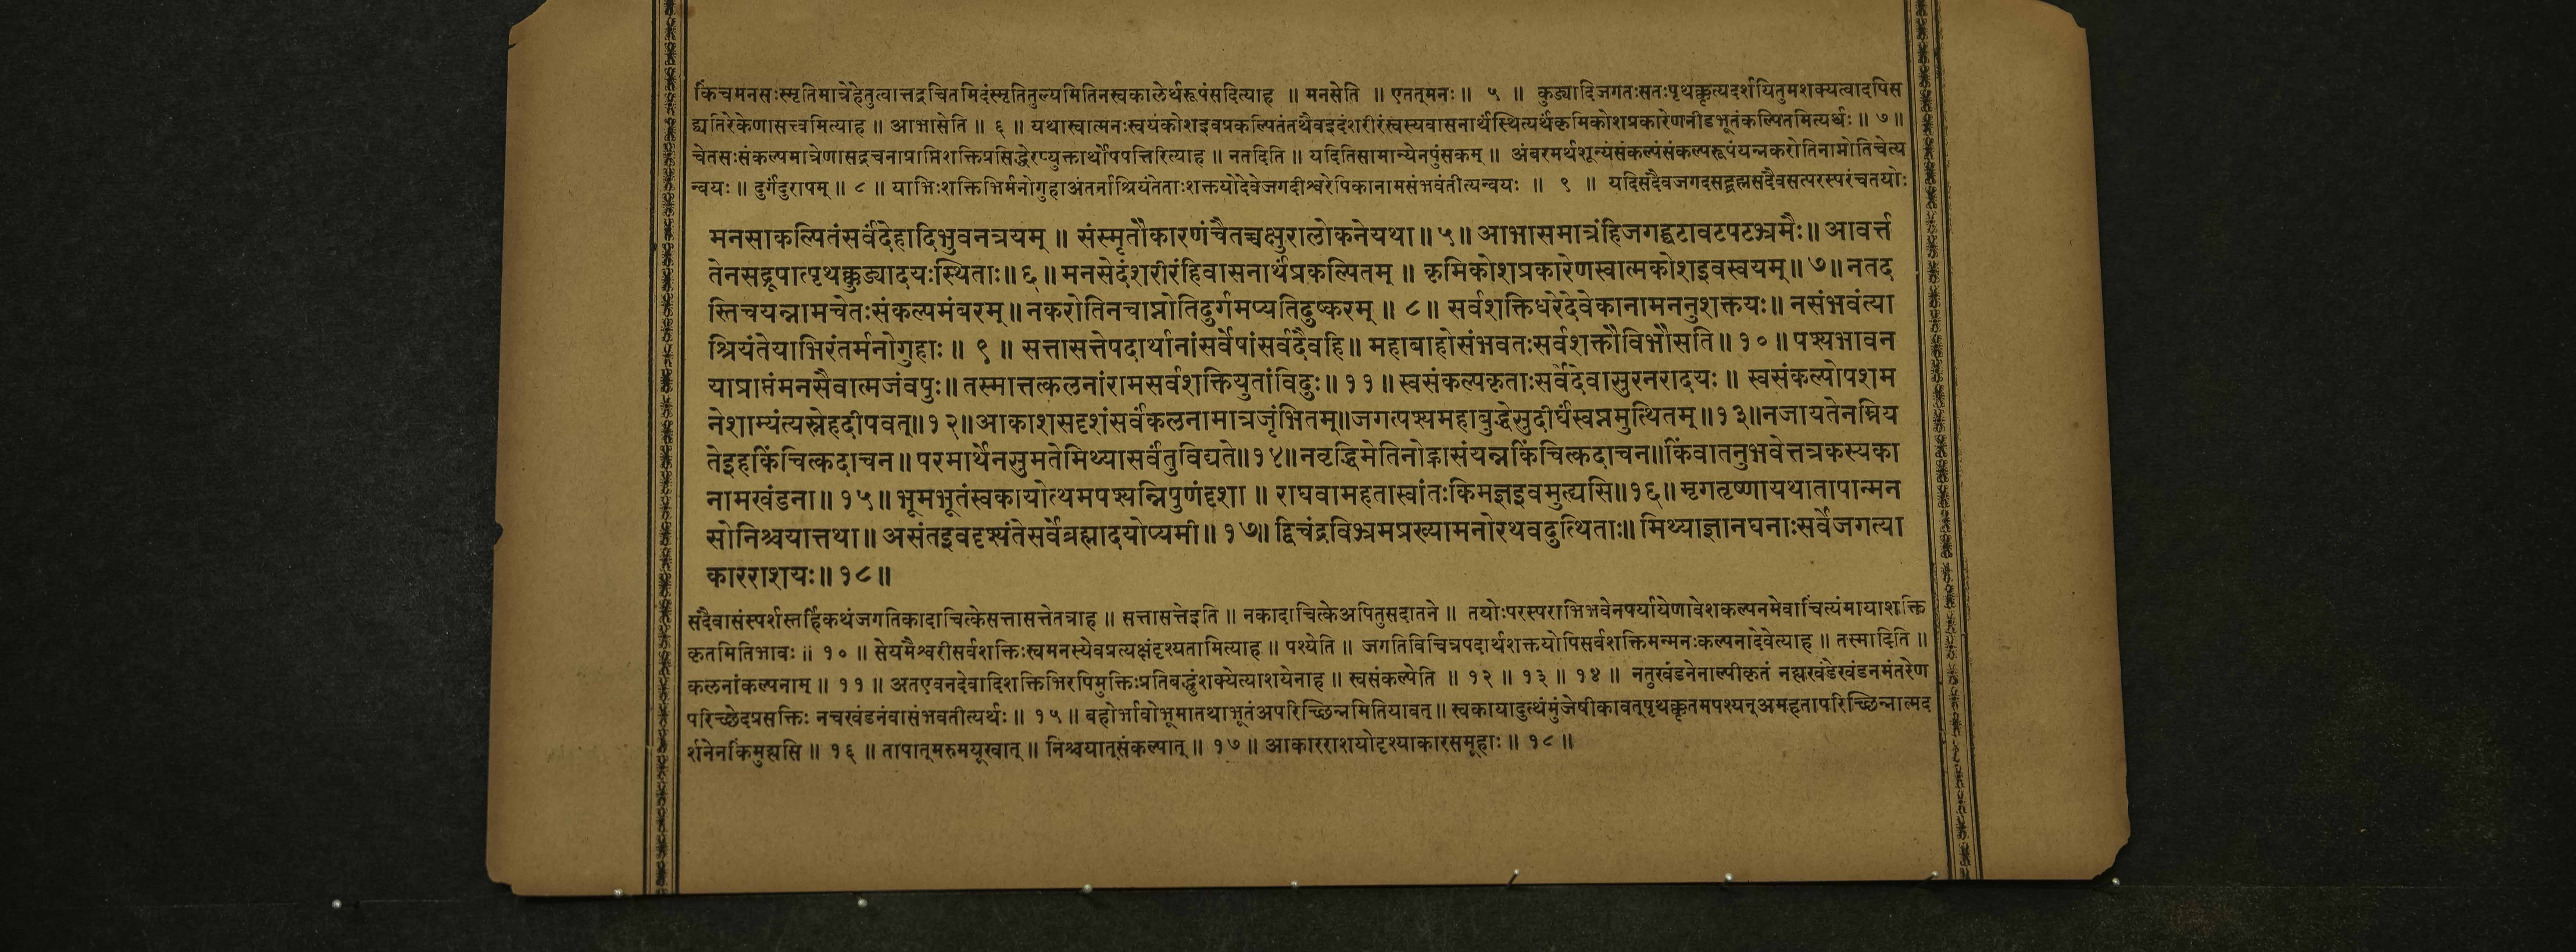 किंचमनसःस्मृतिमात्रेहेतुत्वात्तद्रचितमिदंस्मृतितुल्यमितिनस्वकालेर्थरूपंसदित्याह ॥ मनसेति ॥ एतत्मनः ॥ ५ ॥ कुड्यादिजगतःसतःपृथक्कृत्यदर्शयितुमशक्यत्वादपिस
द्व्यतिरेकेणासत्त्वमित्याह ॥ आभासेति ॥ ६ ॥ यथास्वात्मनःस्वयंकोशइवप्रकल्पितंतथैवइदंशरीरंस्वस्यवासनार्थंस्थित्यर्थंकृमिकोशप्रकारेणनीडभूतंकल्पितमित्यर्थः ॥ ७ ॥
चेतसःसंकल्पमात्रेणासद्रचनाप्राप्तिशक्तिप्रसिद्धेरप्युक्तार्थोपपत्तिरित्याह ॥ नतदिति ॥ यदितिसामान्येनपुंसकम् ॥ अंबरमर्थशून्यंसंकल्पंसंकल्परूपंयन्नकरोतिनाप्नोतिचेत्य
न्वयः ॥ दुर्गंदुरापम् ॥ ८ ॥ याभिःशक्तिभिर्मनोगुहाअंतर्नाश्रियंतेताःशक्तयोदेवेजगदीश्वरेपिकानामसंभवंतीत्यन्वयः ॥ ९ ॥ यदिसदैवजगदसद्ब्रह्मसदैवसत्परस्परंचतयोः
मनसाकल्पितंसर्वंदेहादिभुवनत्रयम् ॥ संस्मृतौकारणंचैतच्चक्षुरालोकनेयथा ॥ ५ ॥ आभासमात्रंहिजगद्घटावटपटभ्रमैः ॥ आवर्त्त
तेनसद्रूपात्पृथक्कुड्यादयःस्थिताः ॥ ६ ॥ मनसेदंशरीरंहिवासनार्थंप्रकल्पितम् ॥ कृमिकोशप्रकारेणस्वात्मकोशइवस्वयम् ॥ ७ ॥ नतद
स्तिचयन्नामचेतःसंकल्पमंबरम् ॥ नकरोतिनचाप्नोतिदुर्गमप्यतिदुष्करम् ॥ ८ ॥ सर्वशक्तिधरेदेवेकानामननुशक्तयः ॥ नसंभवंत्या
श्रियंतेयाभिरंतर्मनोगुहाः ॥ ९ ॥ सत्तासत्तेपदार्थानांसर्वेषांसर्वदैवहि ॥ महाबाहोसंभवतःसर्वशक्तौविभौसति ॥ १० ॥ पश्यभावन
याप्राप्तंमनसैवात्मजंवपुः ॥ तस्मात्तत्कलनांरामसर्वशक्तियुतांविदुः ॥ ११ ॥ स्वसंकल्पकृताःसर्वेदेवासुरनरादयः ॥ स्वसंकल्पोपशम
नेशाम्यंत्यस्नेहदीपवत् ॥ १२ ॥ आकाशसदृशंसर्वंकलनामात्रजृंभितम् ॥ जगत्पश्यमहाबुद्धेसुदीर्घंस्वप्नमुत्थितम् ॥ १३ ॥ नजायतेनम्रिय
तेइहकिंचित्कदाचन ॥ परमार्थेनसुमतेमिथ्यासर्वंतुविद्यते ॥ १४ ॥ नवृद्धिमेतिनोह्रासंयन्नकिंचित्कदाचन ॥ किंवातनुभवेत्तत्रकस्यका
नामखंडना ॥ १५ ॥ भूमभूतंस्वकायोत्थमपश्यन्निपुणंदृशा ॥ राघवामहतास्वांतःकिमज्ञइवमुह्यसि ॥ १६ ॥ मृगतृष्णायथातापान्मन
सोनिश्चयात्तथा ॥ असंतइवदृश्यंतेसर्वेब्रह्मादयोप्यमी ॥ १७ ॥ द्विचंद्रविभ्रमप्रख्यामनोरथवदुत्थिताः ॥ मिथ्याज्ञानघनाःसर्वेजगत्या
कारराशयः ॥ १८ ॥
सदैवासंस्पर्शस्तर्हिकथंजगतिकादाचित्केसत्तासत्तेतत्राह ॥ सत्तासत्तेइति ॥ नकादाचित्केअपितुसदातने ॥ तयोःपरस्पराभिभवेनपर्यायेणावेशकल्पनमेवाचिंत्यंमायाशक्ति
कृतमितिभावः ॥ १० ॥ सेयमैश्वरीसर्वशक्तिःस्वमनस्येवप्रत्यक्षंदृश्यतामित्याह ॥ पश्येति ॥ जगतिविचित्रपदार्थशक्तयोपिसर्वशक्तिमन्मनःकल्पनादेवेत्याह ॥ तस्मादिति ॥
कलनांकल्पनाम् ॥ ११ ॥ अतएवनदेवादिशक्तिभिरपिमुक्तिःप्रतिबद्धुंशक्येत्याशयेनाह ॥ स्वसंकल्पेति ॥ १२ ॥ १३ ॥ १४ ॥ नतुखंडनेनाल्पीकृतं नह्यखंडेखंडनमंतरेण
परिच्छेदप्रसक्तिः नचखंडनंवासंभवतीत्यर्थः ॥ १५ ॥ बहोर्भावोभूमातथाभूतंअपरिच्छिन्नमितियावत् ॥ स्वकायादुत्थंमुंजेषीकावत्पृथक्कृतमपश्यन्अमहतापरिच्छिन्नात्मद
र्शनेनकिंमुह्यसि ॥ १६ ॥ तापात्मरुमयूखात् ॥ निश्चयात्संकल्पात् ॥ १७ ॥ आकारराशयोदृश्याकारसमूहाः ॥ १८ ॥